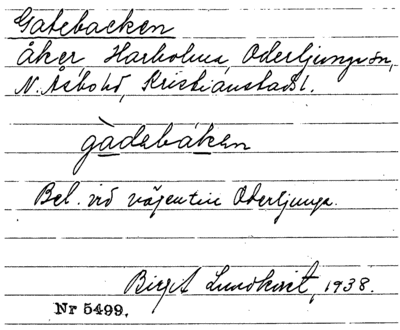 Gatebacken
åker, Harbolma, Oderljunga sn,
N. Åsbo hd, Kristianstads l.
gàdebáken
Bel. vid vägen till Oderljunga.
Birgit Lundkvist, 1938.
Nr 5499.